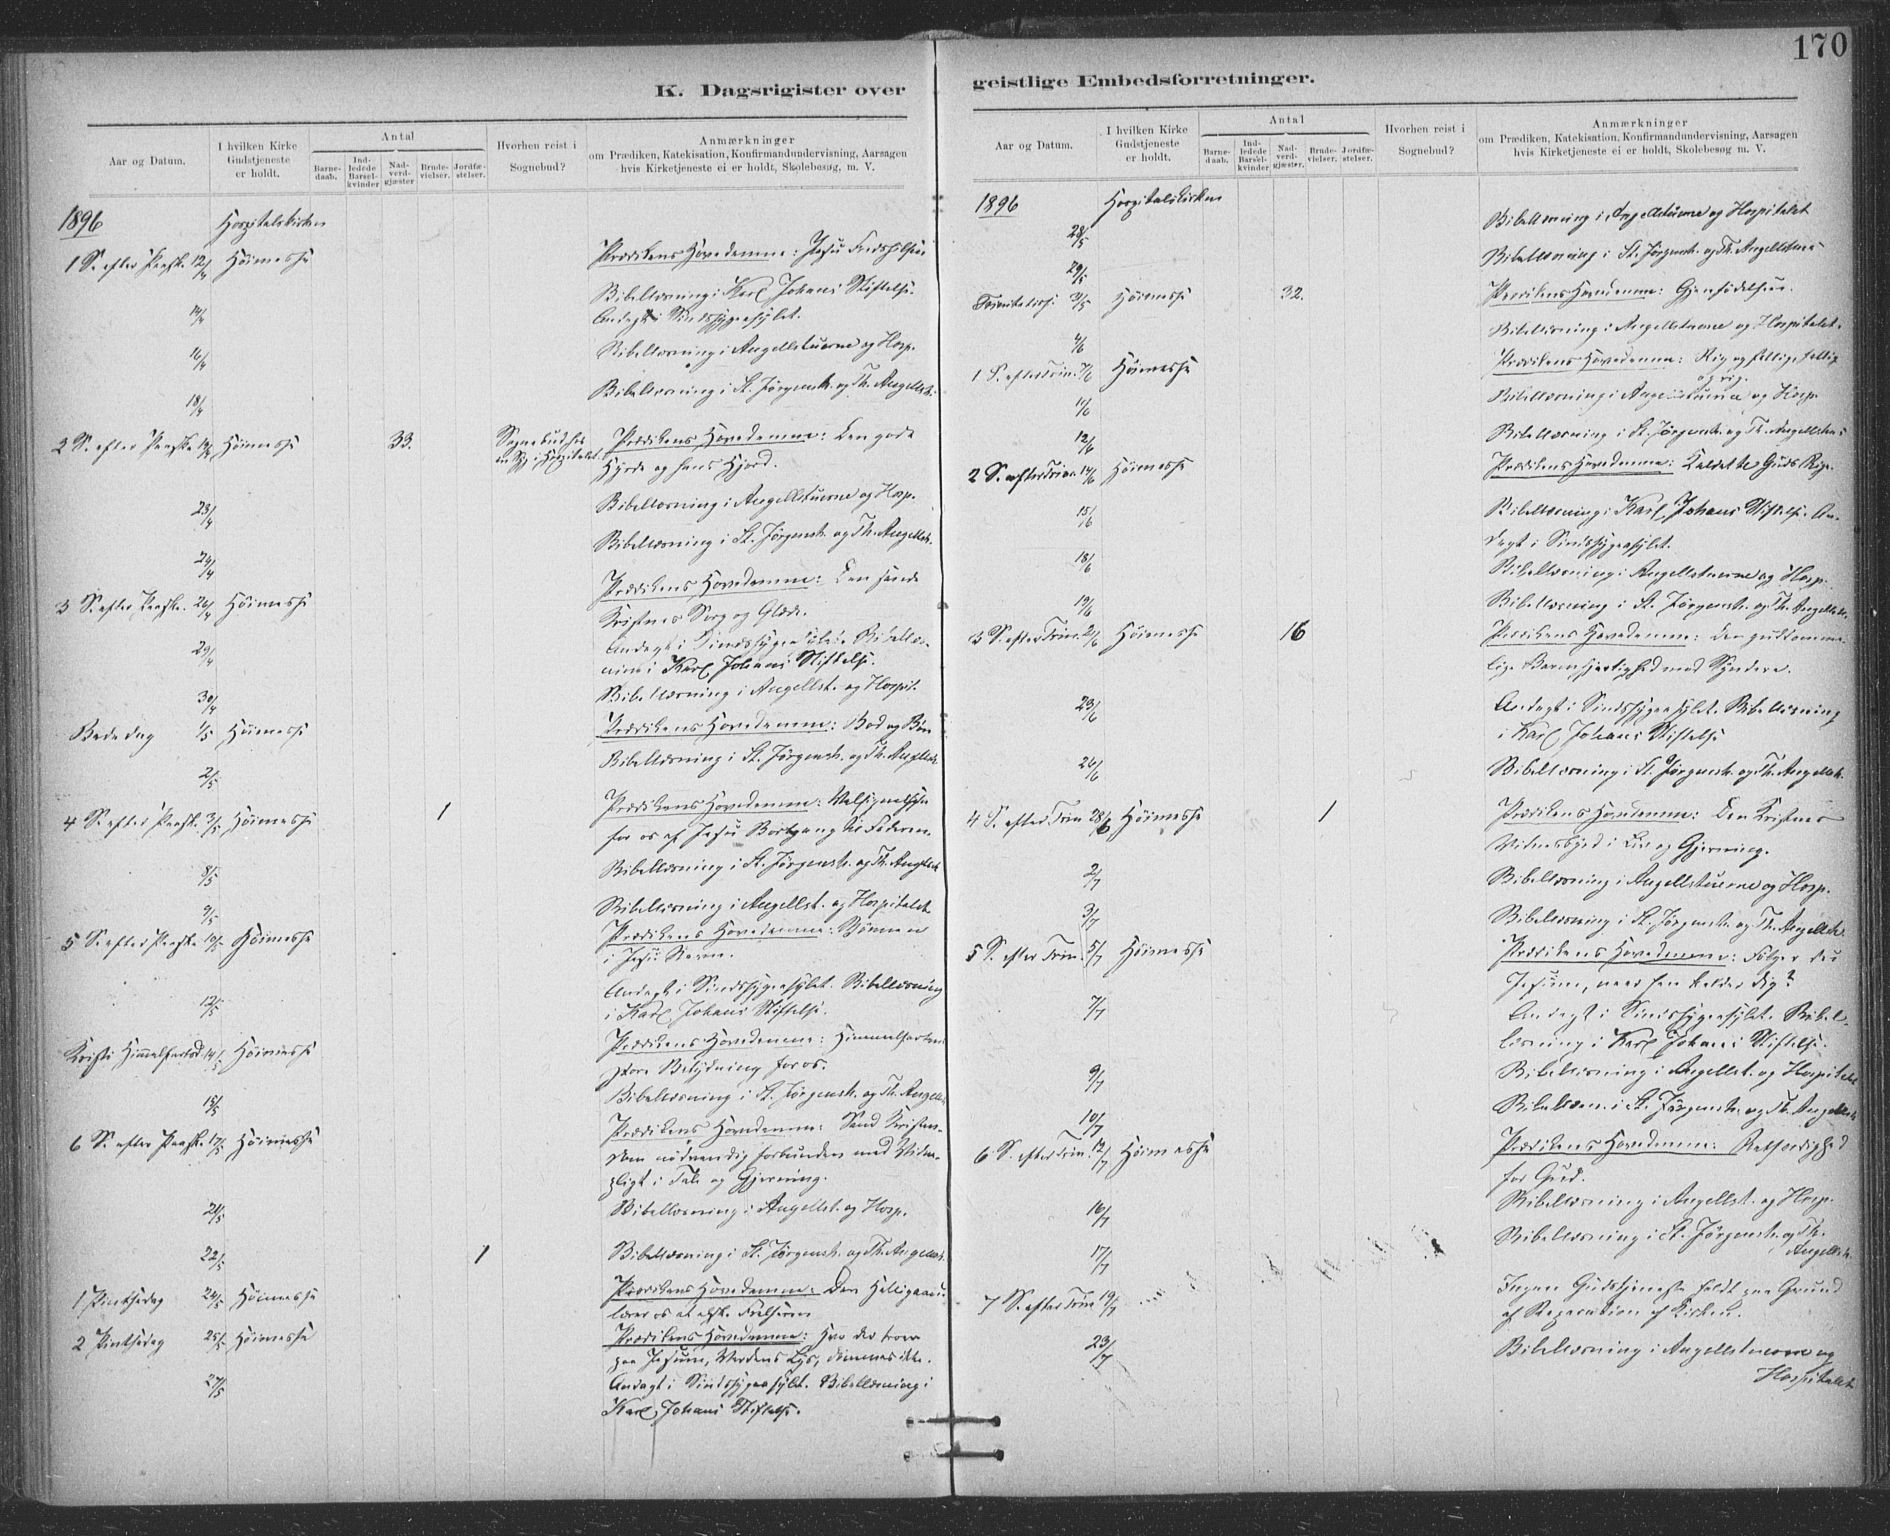 170
K. Dagsrigister over
geistlige Embedsforretninger.
Aar og Datum.
I hvilken Kirke Gudstjeneste er holdt.
Antal
Barnedaab.
Indledede Barselkvinder
Nadverdgjæster
Brudevielser.
Jordfæstelser.
Hvorhen reist i Sognebud?
Anmærkninger
om Prædiken, Katekisation, Konfirmandundervisning, Aarsagen
hvis Kirketjeneste ei er holdt, Skolebesøg, m. V.
1896 Hospitalskirken
1 S. efter Paaske 12/4 Høimesse Prædikens Hovedemne: Jesu Fredshilsen
14/4 Bibellæsning i Karl Johans Stiftelse.
Andagt i Sindssygeasylet.
16/4 Bibellæsning i Angellstuerne og Hosp.
18/4 Bibellæsning i St. Jørgensh. og Th. Angellsh.
2 S. efter Paaske 19/4 Høimesse 33. Sognebud hos en Syg i Hospitalet. Prædikens Hovedemne: Den gode
Hyrde og hans Hjord.
23/4 Bibellæsning i Angellstuerne og Hosp.
24/4 Bibellæsning i St. Jørgensh. og Th. Angellsh.
3 S. efter Paaske. 26/4 Høimesse Prædikens Hovedemne: Den sande
Kristnes Sorg og Glæde.
29/4 Andagt i Sindssygeasylet. Bibellæsning i Karl Johans Stiftelse.
30/4 Bibellæsning i Angellst. og Hospit.
Bededag 1/5 Høimesse Prædikens Hovedemne: Bod og Bøn
2/5 Bibellæsning i St. Jørgensh. og Th. Angellsh.
4 S. efter Paaske 3/5 Høimesse 1 Prædikens Hovedemne: Velsignelsen
for os af Jesu Bortgang til Faderen.
8/5 Bibellæsning i St. Jørgensh. og Th. Angellsh.
9/5 Bibellæsning i Angellst. og Hospitalet
5 S. efter Paaske 10/5 Høimesse Prædikens Hovedemne: Bønnen
i Jesu Navn.
12/5 Andagt i Sindssygeasylet. Bibellæsning
i Karl Johans Stiftelse.
Kristi Himmelfartsd. 14/5 Høimesse Prædikens Hovedemne: Himmelfartens
store Betydning for os.
15/5 Bibellæsning i St. Jørgensh. og Th. Angellsh.
6 S. efter Paaske. 17/5 Høimesse Prædikens Hovedemne: Sand Kristendom nødvendig forbunden med Vidnepligt i Tale og Gjerning.
21/5 Bibellæsning i Angellst. og Hosp.
22/5 1 Bibellæsning i St. Jørgensh. og Th. Angellsh.
1 Pintsedag 24/5 Høimesse Prædikens Hovedemne: Den Helligaand
lærer os at elske Frelseren
2 Pintsedag 25/5 Høimesse Prædikens Hovedemne: Hvo der troer
paa Jesum, Verdens Lys, dømmes ikke.
27/5 Andagt i Sindssygeasylet. Bibellæsning i
Karl Johans Stiftelse.
Aar og Datum.
I hvilken Kirke Gudstjeneste er holdt.
Antal
Barnedaab.
Indledede Barselkvinder
Nadverdgjæster.
Brudevielser.
Jordfæstelser.
Hvorhen reist i Sognebud?
Anmærkninger
om Prædiken, Katekisation, Konfirmandundervisning, Aarsagen
hvis Kirketjeneste ei er holdt, Skolebesøg m. V.
1896 Hospitalskirken
28/5 Bibellæsning i Angellstuerne og Hospitalet
29/5 Bibellæsning i St. Jørgensh. og Th. Angellstues
Trinitatiss. 31/5 Høimesse 32. Prædikens Hovedemne: Gjenfødelsen.
4/6 Bibellæsning i Angellstuerne og Hospitalet.
1 S. efter Trin. 7/6 Høimesse Prædikens Hovedemne: Rig og fattig, fattig
og rig.
11/6 Bibellæsning i Angellstuerne og Hosp.
12/6 Bibellæsning i St. Jørgensh. og Th. Angellstues
2 S. efter Trin. 14/6 Høimesse Prædikens Hovedemne: Kaldet til Guds Rige.
15/6 Bibellæsning i Karl Johans Stiftelse. Andagt i Sindssygeasylet.
18/6 Bibellæsning i Angellstuerne og Hosp.
19/6 Bibellæsning i St. Jørgensh. og Th. Angellsh.
3 S. efter Trin. 21/6 Høimesse 16 Prædikens Hovedemne: Den guddommelige Barmhjertighed mod Syndere.
23/6 Andagt i Sindssygeasylet. Bibellæsning
i Karl Johans Stiftelse
26/6 Bibellæsning i St. Jørgensh. og Th. Angellsh.
4 S. efter Trin 28/6 Høimesse 1 Prædikens Hovedemne: Den Kristnes
Vidnesbyrd i Liv og Gjerning.
2/7 Bibellæsning i Angellstuerne og Hosp.
3/7 Bibellæsning i St. Jørgensh. og Th. Angellsh.
5 S. efter Trin. 5/7 Høimesse Prædikens Hovedemne: Følger du
Jesum, naar han kalder dig?
7/7 Andagt i Sindssygeasylet. Bibellæsning i Karl Johans Stiftelse.
9/7 Bibellæsning i Angellst. og Hospitalet
10/7 Bibellæsn. i St. Jørgensh. og Th. Angellsh.
6 S. efter Trin. 12/7 Høimesse Prædikens Hovedemne: Retfærdighed
for Gud.
16/7 Bibellæsning i Angellst. og Hosp.
17/7 Bibellæsning i St. Jørgensh. og Th.
Angellsh.
7 S. efter Trin 19/7 Ingen Gudstjeneste holdt paa Grund
af Reparation af Kirken.
23/7 Bibellæsning i Angellstuerne og
Hospitalet